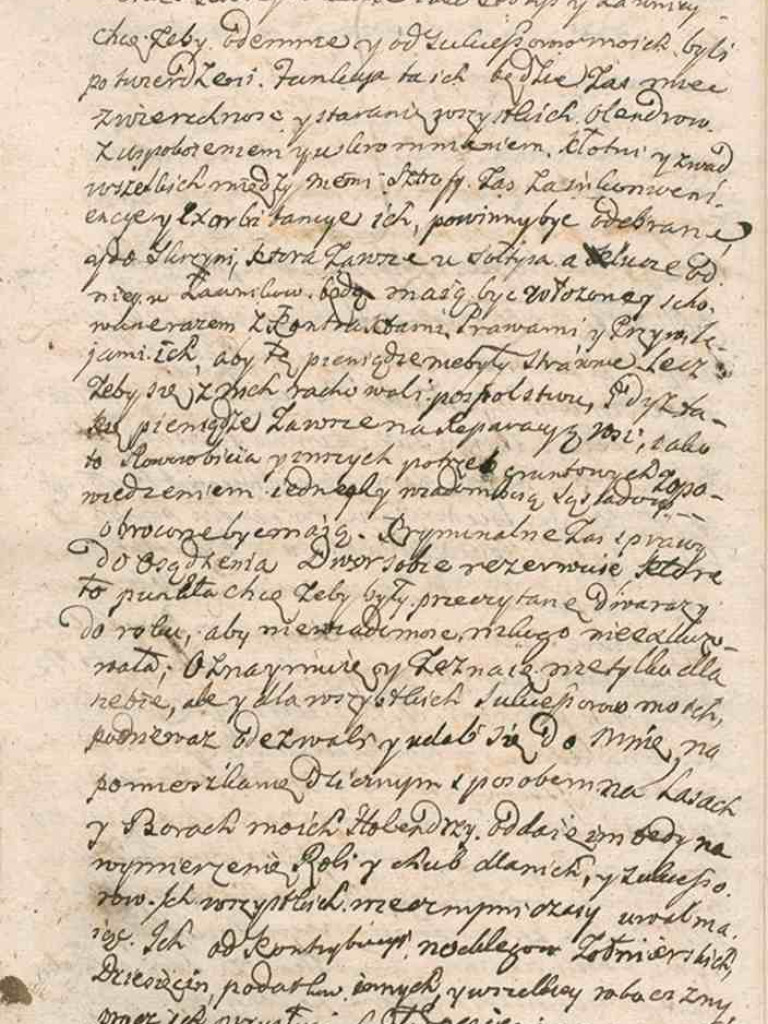 chcę żeby odemnie y od Sukcessorow moich byli
potwierdzeni. Funkcya ta ich będzie zas miec
zwierzchnosc y staranie wszystkich Olendrow.
z uspokoieniem y uskromnieniem, kłotni y zwad
wszelkich między niemi Sztrofy zas za inkonweni-
encye y Exorbitancye ich, powinny byc odebrane,
a do Skrzyni, ktora zawsze u Sołtysa a klucze od
niey u Ławnikow będą maią byc włozone y scho-
wane razem z Kontraktami, Prawami y Przywile-
jami ich, aby te pieniądze niebyły strawne lecz
Żeby się z nich rachowali pospolstwu, Gdyz ta-
kie pieniądze zawsze na Reparacyą wsi, iako
to y innych potrzeb gruntowych zapo-
wiedzeniem iednakże wiadomością Sąsiadow
obrocone byc maią. Kryminalne zas sprawy
do Osądzenia Dwor sobie rezerwuie, ktore
to punkta chcę żeby były przeczytane dwa razy
do roku, aby niewiadomosc nikogo nieexkuzo-
wała; Oznaymuię y Zeznaię nietylko dla
siebie, ale y dla wszystkich Sukcessorow moich,
ponieważ odezwali y udali się do Mnie, na
pomieszkanie Dziernym sposobem na Lasach
y Borach moich Holendrzy. oddaię im tedy na
wymierzenie Roli y chub dla nich, y Sukcesso-
row. Ich wszystkich wiecznymi czasy uwalnia-
iąc. Ich od Kontrybucyi, noclegow Żołnierskich,
Dziesięcin, podatkow innych, y wszelkiey robocizny,